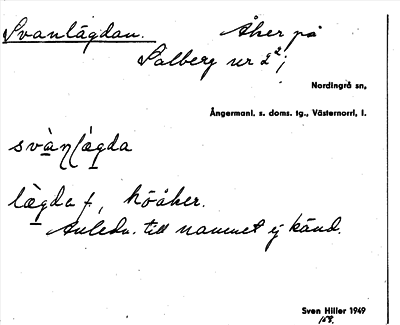 Svanlägdan. Åker på
Salberg nr 2²;
Nordingrå sn,
Ångermanl. s. doms. tg., Västernorrl, l.
svàn(lä̀gda
lä̀gda f, höåker.
Anledn. till namnet ej känd.
Sven Hiller 1949